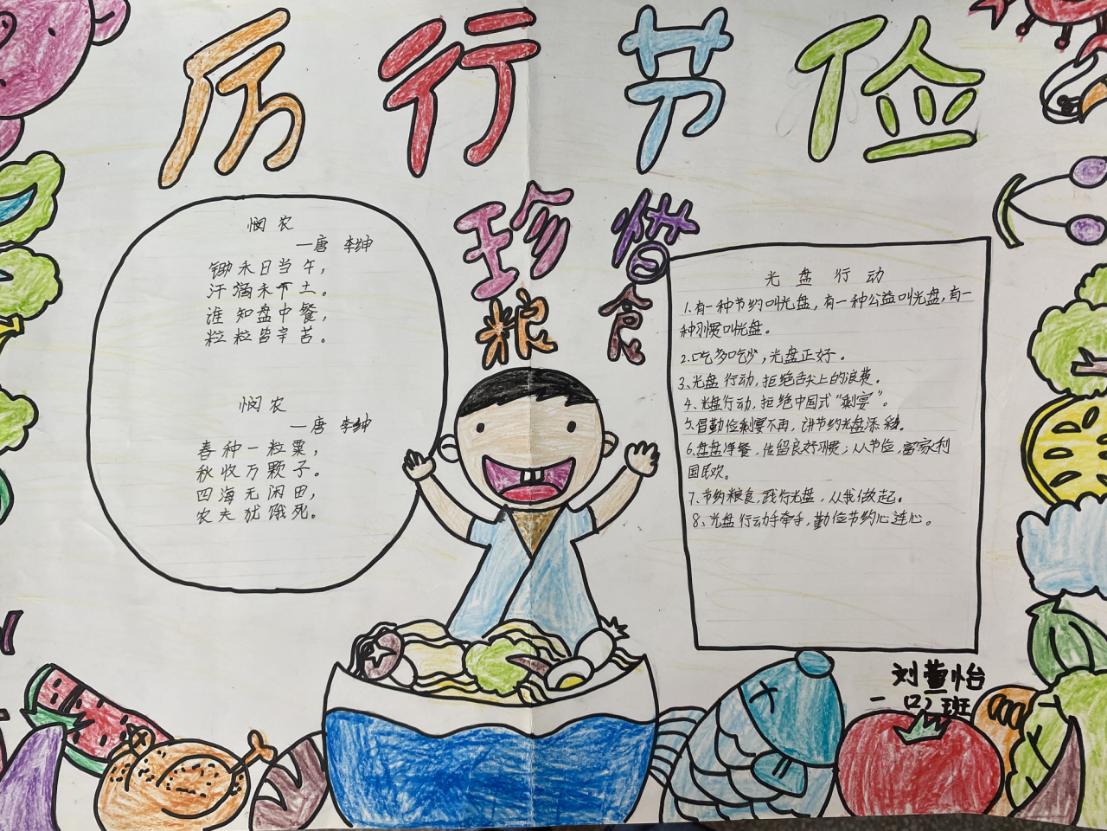 厉行节俭
珍惜
粮食
悯农
—唐 李绅
锄禾日当午，
汗滴禾下土。
谁知盘中餐，
粒粒皆辛苦。
悯农
—唐 李绅
春种一粒粟，
秋收万颗子。
四海无闲田，
农夫犹饿死。
光盘行动
1.有一种节约叫光盘，有一种公益叫光盘，有一
种习惯叫光盘。
2.吃多吃少，光盘正好。
3、光盘行动，拒绝舌尖上的浪费。
4、光盘行动，拒绝中国式“剩宴”。
5、倡勤俭剩宴不再，讲节约光盘添彩。
6.盘盘净餐，佳留良好习惯；从节俭，富家利
国民欢。
7、节约粮食，践行光盘，从我做起。
8、光盘行动手牵手，勤俭节约心连心。
刘萱怡
一 班